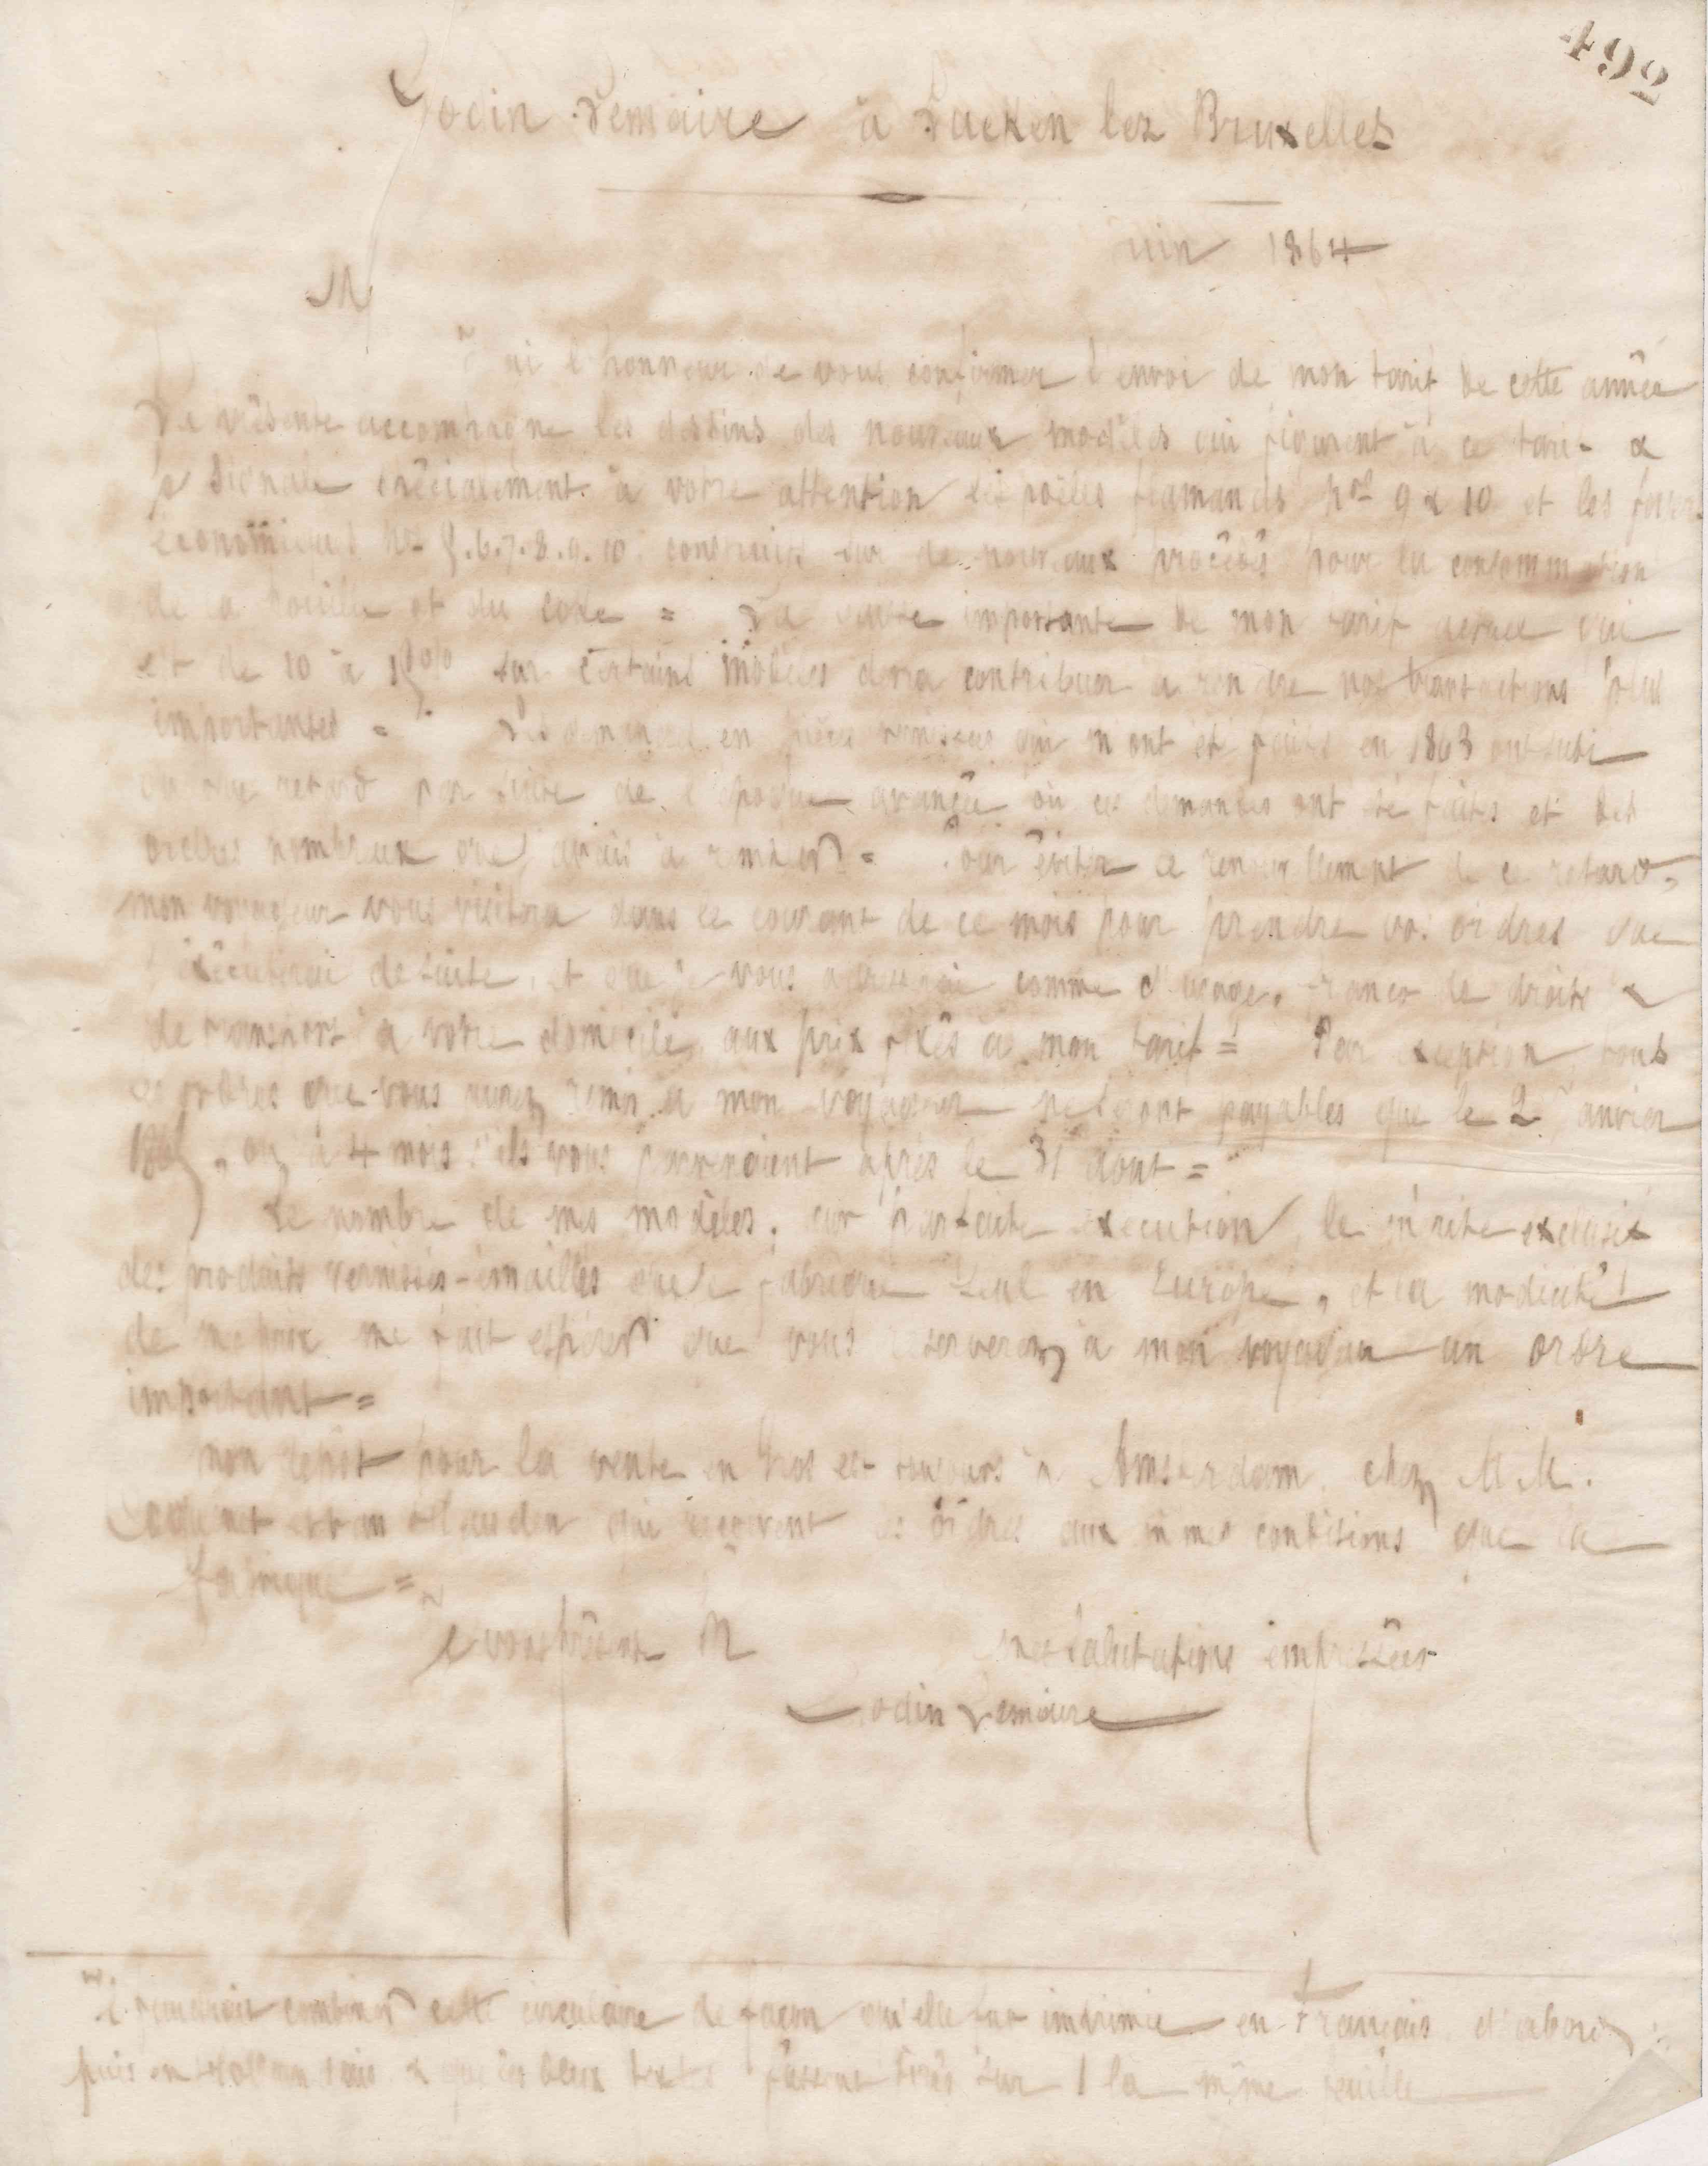 492
Godin Lemaire à Laeken lez Bruxelles
Juin 1864
M
J'ai l'honneur de vous confirmer l'envoi de mon tarif de cette année
La présente accompagne les dessins des nouveaux modèles qui figurent à ce tarif &
je signale spécialement à votre attention les poëles flamands nos 9 & 10 et les foyers
économiques nos 5.6.7.8.9.10 construits sur de nouveaux procédés pour la consommation
de la houille et du coke = La importante de mon tarif qui
est de 10 à 15% sur certains modèles devra contribuer à rendre nos transactions plus
importantes = Les demandes en pièces vernissées qui m'ont été faites en 1863 ont subi
du retard par suite de l'époque avancée où ces demandes ont été faites et des
ordres nombreux que j'avais à remplir = Pour éviter le renouvellement de ce retard,
mon voyageur vous visitera dans le courant de ce mois pour prendre vos ordres que
j'exécuterai de suite, et que je vous adresserai comme d'usage, franco de droits &
de transport à votre domicile, aux prix fixés à mon tarif = Par exception, tous
les ordres que vous aurez remis à mon voyageur ne seront payables que le 2 Janvier
1865, ou à 4 mois s'ils vous parvenaient après le 31 aout =
Le nombre de mes modèles, leur parfaite exécution, le mérite exclusif
des produits vernissés-émaillés que je fabrique seul en Europe, et la modicité
de mes prix me fait espérer que vous réserverez à mon voyageur un ordre
important =
Mon dépôt pour la vente en gros est toujours à Amsterdam, chez M.M.
qui reçoivent les ordres aux mêmes conditions que la
fabrique =
Je vous présente M mes salutations empressées
Godin Lemaire
Il faudrait combiner cette circulaire de façon qu'elle fut imprimée en Français d'abord,
puis en Hollandais & que les deux textes fussent tirés sur la même feuille